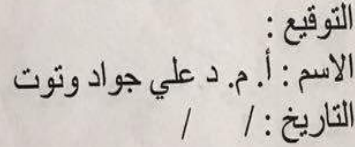 التوقيع :
الاسم : أ. م. د علي جواد وتوت
التاريخ : / /